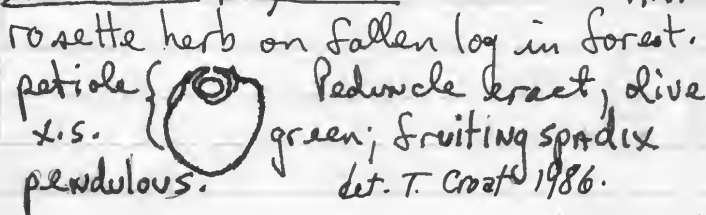 rosette herb on fallen log in forest.
petiole { Peduncle erect, olive
x.s. green; fruiting spadix
pendulous. det. T. Croat 1986.